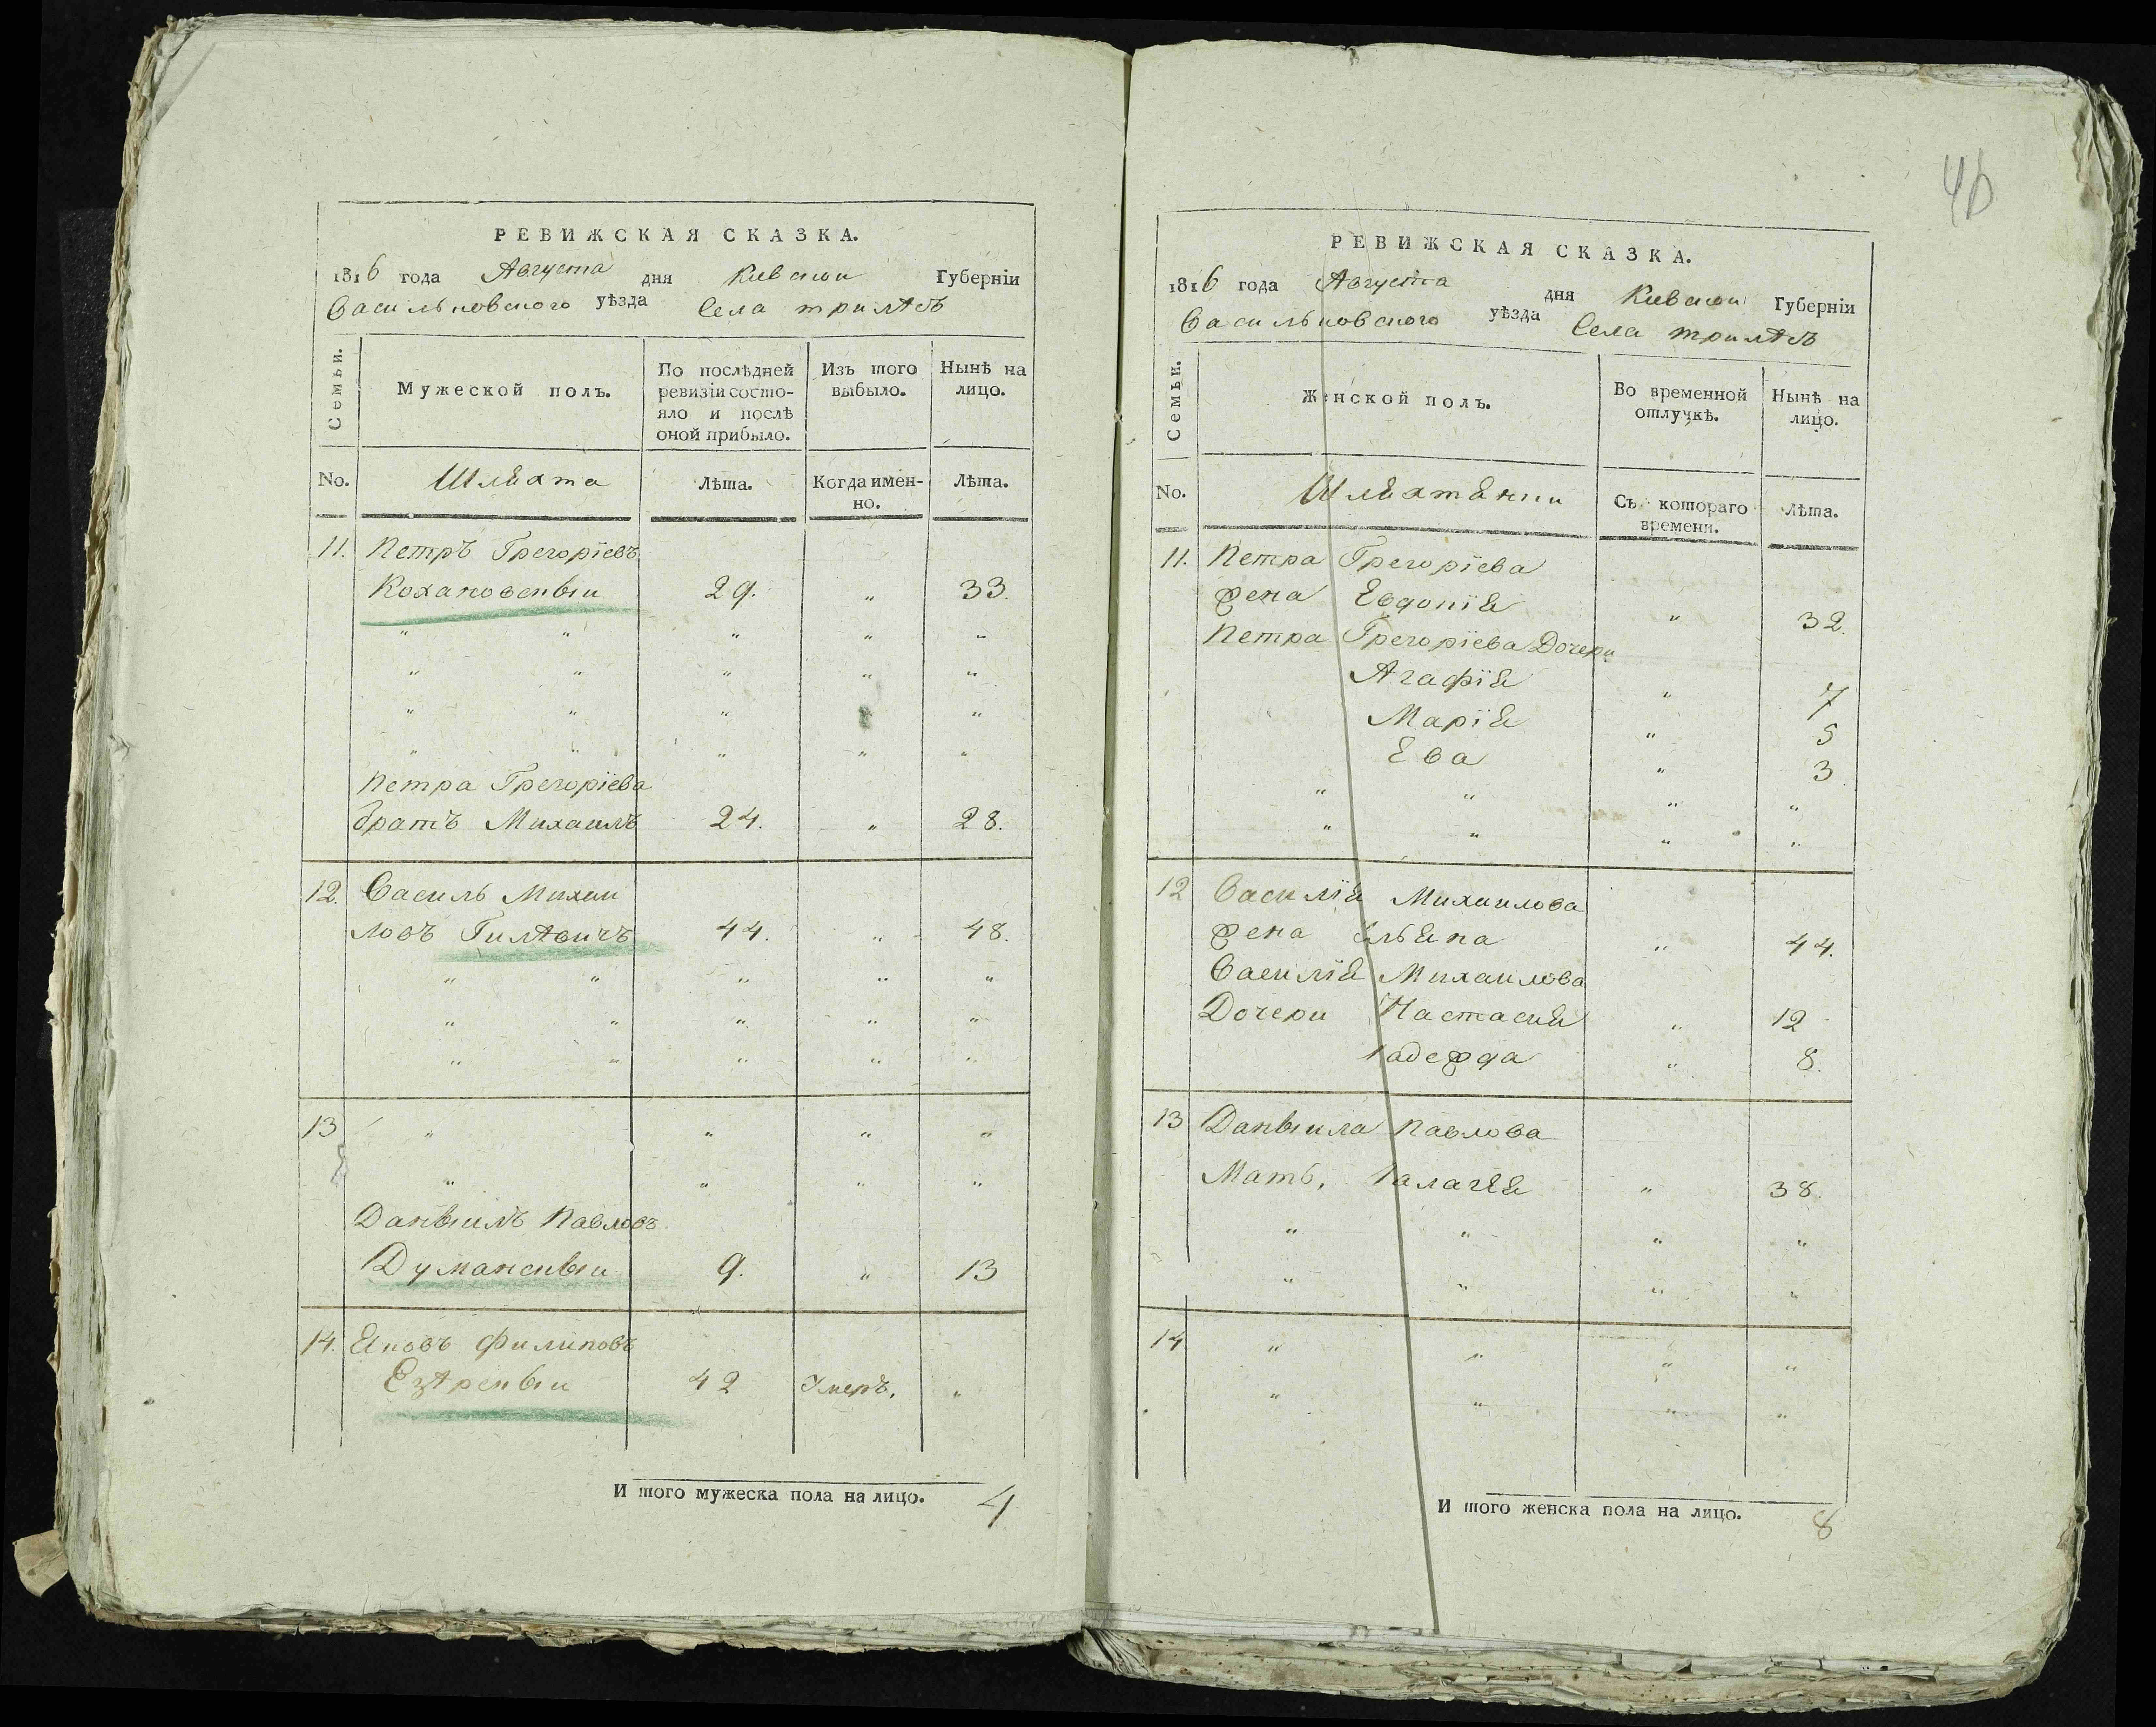 46
РЕВИЖСКАЯ СКАЗКА.
1816 года Августа дня Киевской Губерніи
Васильковского уѣзда Села трилѣсъ
Семьи.
Мужеской полъ.
По послѣдней ревизіи состо-
яло и послѣ
оной прибыло.
Изъ того
выбыло.
Нынѣ на
лицо.
No.
Шляхта
Лѣта.
Когда имен-
но.
Лѣта.
11. Петръ Грегорїевъ
Кохановскый 29. " 33.
" " " " "
" " " " "
" " " "
" " " " "
Петра Грегорїева
братъ Михаилъ 24. " 28.
12. Василь Михаи
ловъ Гилѣвичъ 44. " 48.
" " " " "
" " " " "
" " " " "
13 " " " "
" " " "
Даныилъ Павловъ
Думанскый 9. " 13
14. Яковъ Филиповъ
Езѣрскый 42 Умеръ. "
И того мужеска пола на лицо. 4
РЕВИЖСКАЯ СКАЗКА.
1816 года Августа дня Киевской Губерніи
Васильковского уѣзда Села трилѣсъ
Семьи.
Женской полъ.
Во временной
отлучкѣ.
Нынѣ на
лицо.
No.
Шляхтянки
Съ котораго
времени.
Лѣта.
11. Петра Грегорїева
жена Евдокїя " 32.
Петра Грегорїева Дочери
Агафїя " 7
Марїя " 5
Ева " 3
" " " "
" " " "
12 Василїя Михаилова
жена Ульяна " 44.
Василїя Михаилова
Дочери Настасия " 12
Надежда " 8.
13 Даныила Павлова
Мать, " 38.
" " " "
" " " "
14 " " " "
" " " "
И того женска пола на лицо. 8